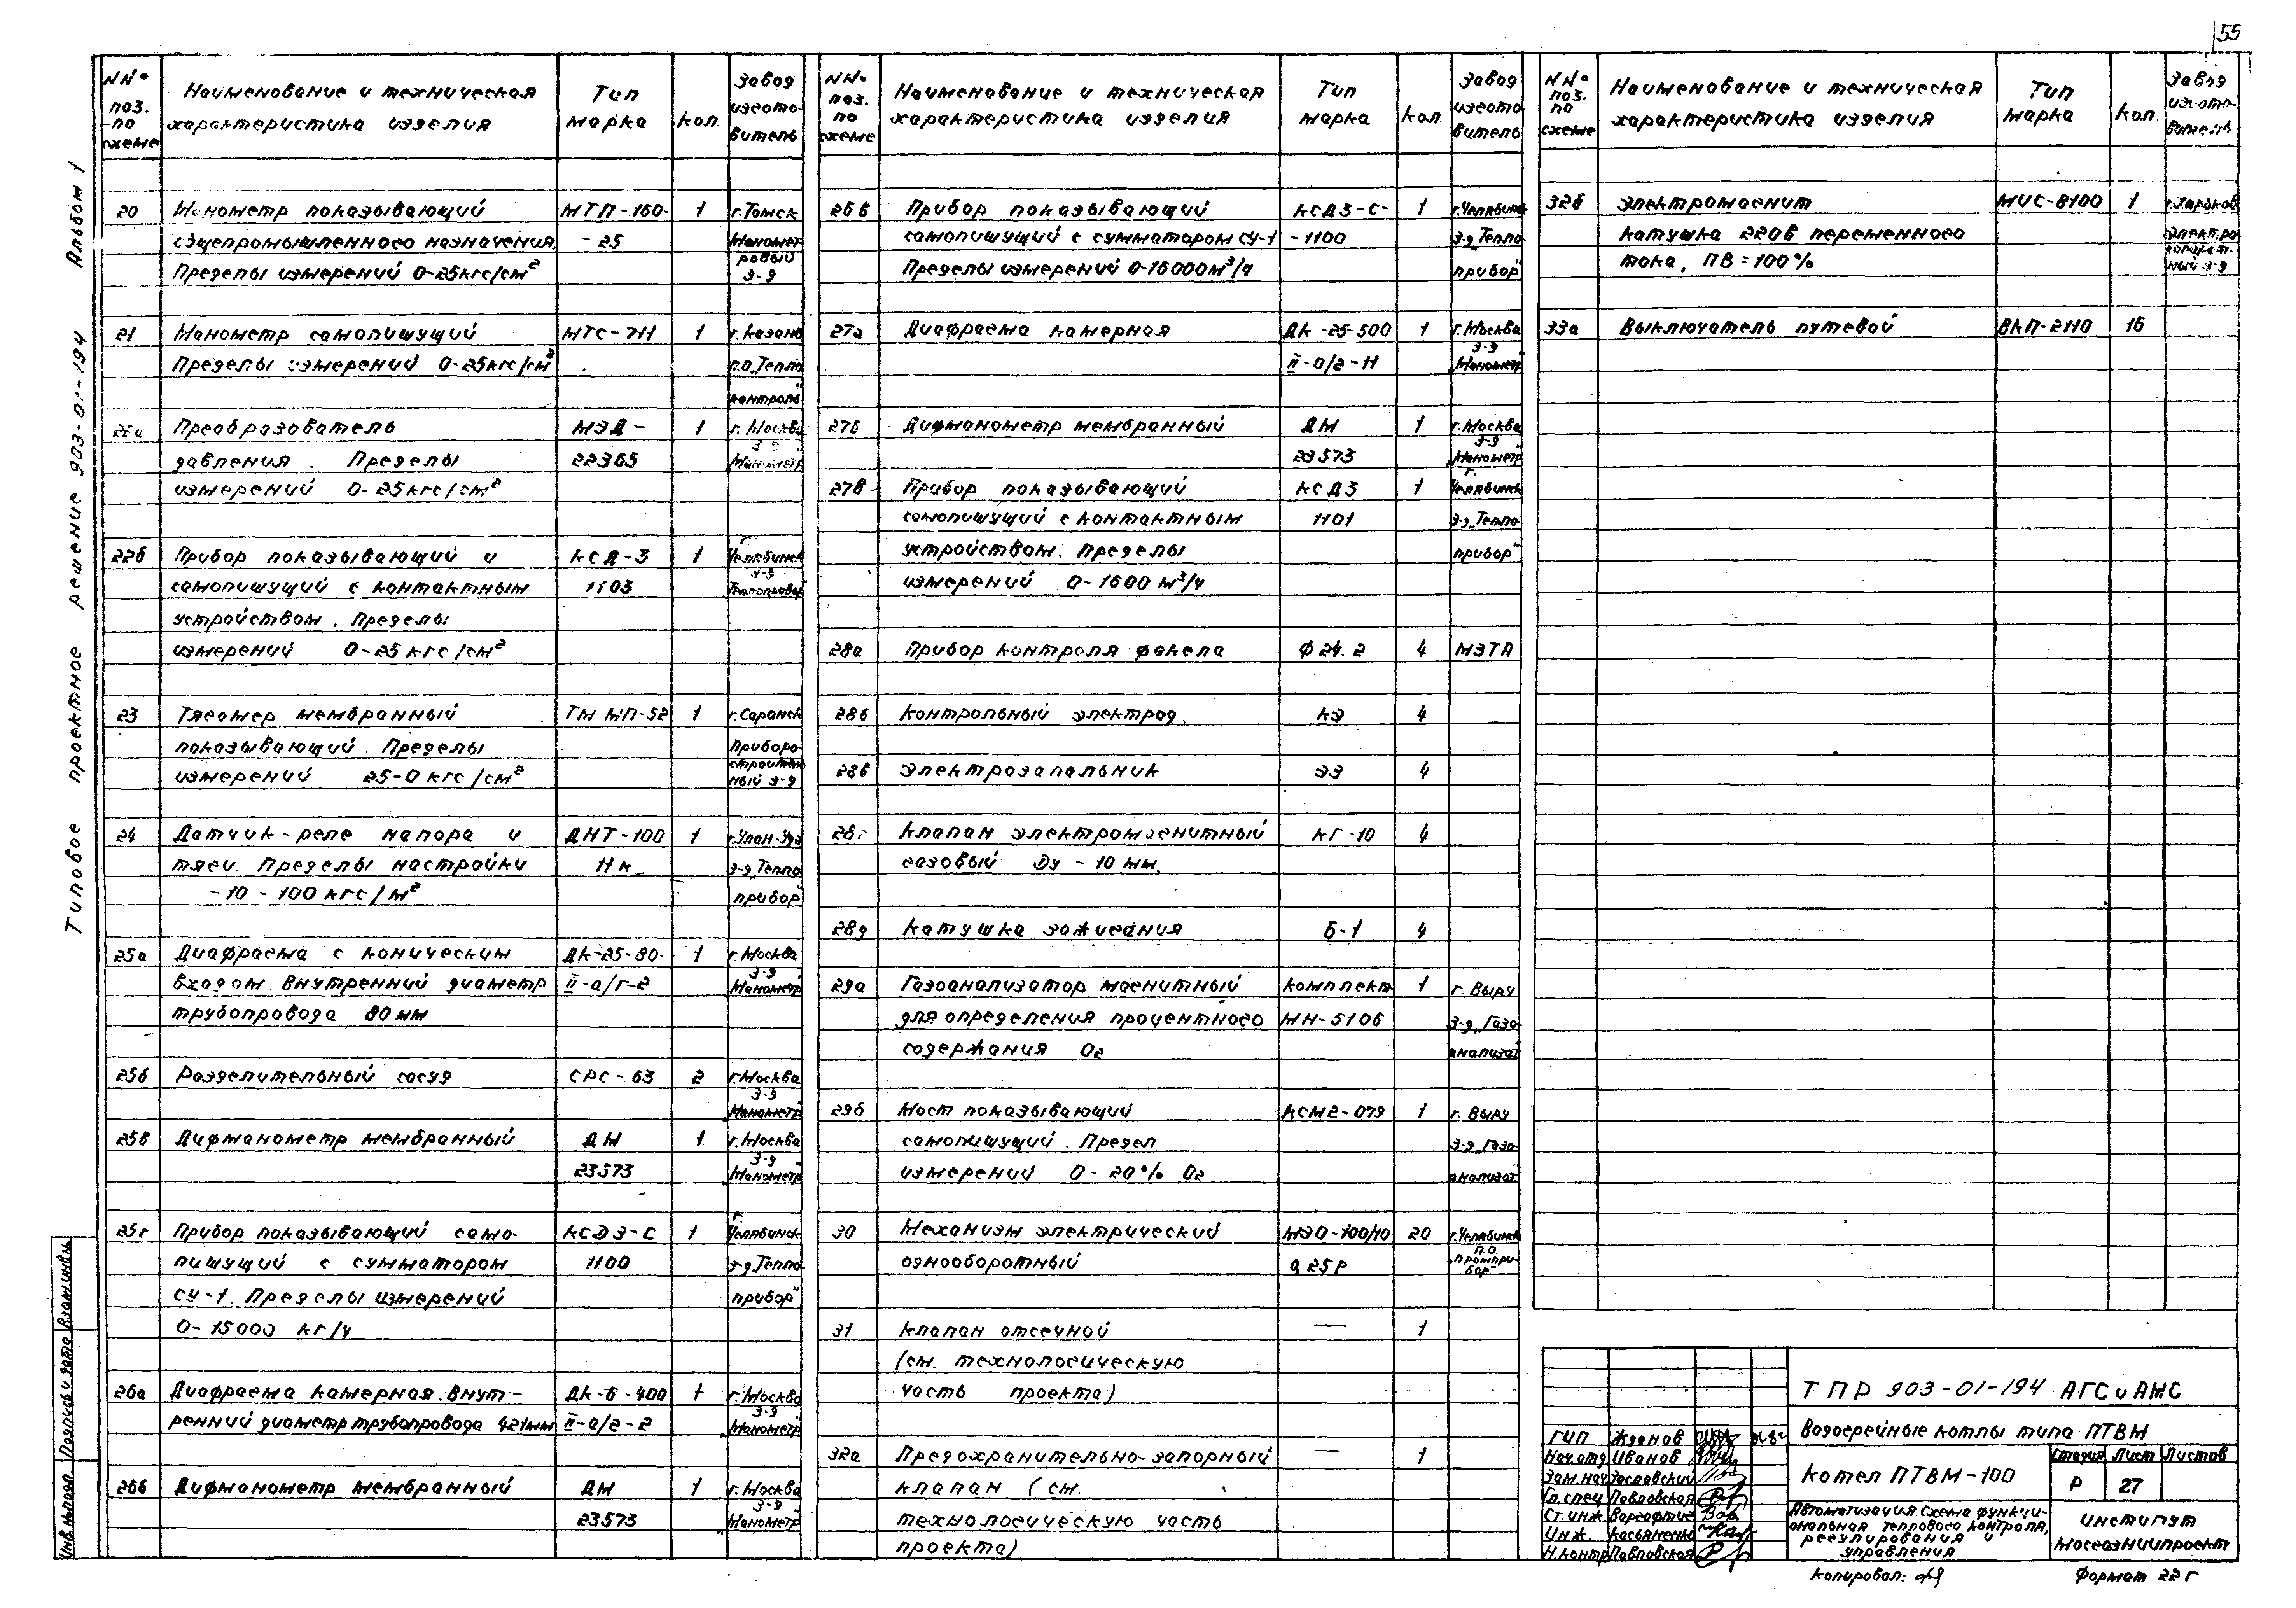 55
Альбом 1
Типовое проектное решение 903-01-194
NN° поз. по схеме | Наименование и техническая характеристика изделия | Тип марка | кол. | Завод изготовитель
20 Манометр показывающий МТП-160- 1 г.Томск
общепромышленного назначения. -25 Манометровый
Пределы измерений 0-25кгс/см² з-д
21 Манометр самопишущий МТС-711 1 г.Казань
Пределы измерений 0-25кгс/см² п.о„Тепло
контроль"
22а Преобразователь МЭД- 1 г.Москва
давления. Пределы 22365 з-д „Манометр"
измерений 0-25кгс/см²
22б Прибор показывающий и КСД-3 1 г. Челябинск
самопишущий с контактным 1103 з-д Теплоприбор
устройством. Пределы
измерений 0-25 кгс/см²
23 Тягомер мембранный ТМ МП-52 1 г.Саранск
показывающий. Пределы Приборо-
измерений 25-0 кгс/см² строительный з-д
24 Датчик-реле напора и ДНТ-100 1 г.Улан-Удэ
тяги. Пределы настройки НК з-д„Тепло
-10-100 кгс/м² прибор"
25а Диафрагма с коническим ДК-25-80- 1 г.Москва
входом. Внутренний диаметр II-а/г-2 з-д „Манометр"
трубопровода 80мм
25б Разделительный сосуд СРС-63 2 г.Москва
з-д „Манометр"
25в Дифманометр мембранный ДМ 1 г.Москва
23573 з-д „Манометр"
25г Прибор показывающий само- КСД3-С 1 г. Челябинск
пишущий с сумматором 1100 з-д„Тепло
СУ-1. Пределы измерений прибор"
0-15000 кг/ч
26а Диафрагма камерная. Внут- ДК-6-400 1 г.Москва
ренний диаметр трубопровода 421мм II-а/г-2 з-д „Манометр"
26б Дифманометр мембранный ДМ 1 г.Москва
23573 з-д „Манометр"
NN° поз. по схеме | Наименование и техническая характеристика изделия | Тип марка | кол. | Завод изготовитель
26в Прибор показывающий КСД3-С- 1 г.Челябинск
самопишущий с сумматором СУ-1 -1100 з-д„Тепло
Пределы измерений 0-16000м³/ч прибор"
27а Диафрагма камерная ДК-25-500 1 г.Москва
II-а/г-Н з-д „Манометр"
27б Дифманометр мембранный ДМ 1 г.Москва
23573 з-д „Манометр"
27в Прибор показывающий КСД3 1 г. Челябинск
самопишущий с контактным 1101 з-д„Тепло
устройством. Пределы прибор"
измерений 0-1600 м³/ч
28а Прибор контроля факела Ф24.2 4 МЗТА
28б Контрольный электрод. КЭ 4
28в Электрозапальник ЭЗ 4
28г Клапан электромагнитный КГ-10 4
газовый Ду-10 мм.
28д Катушка зажигания Б-1 4
29а Газоанализатор магнитный Комплект 1 г. Выру
для определения процентного МН-5106 з-д„Газо
содержания O₂ анализат
29б Мост показывающий КСМ2-079 1 г. Выру
самопишущий. Предел з-д„Газо
измерений 0-20% O₂ анализат
30 Механизм электрический МЭО-100/10 20 г.Челябинск
однооборотный 0,25Р п.о. „Промприбор"
31 Клапан отсечной — 1
(см. технологическую
часть проекта)
32а Предохранительно-запорный — 1
клапан (см.
технологическую часть
проекта)
NN° поз. по схеме | Наименование и техническая характеристика изделия | Тип марка | кол. | Завод изготовитель
32б Электромагнит МИС-8100 1 г.Харьков
катушка 220в переменного Электро
тока, ПВ=100% аппаратный з-д
33а Выключатель путевой ВКП-2110 16
ТПР 903-01-194 АГСиАМС
Водогрейные котлы типа ПТВМ
Котел ПТВМ-100
Стадия Лист Листов
Р 27
Автоматизация. Схема функци-
ональная теплового контроля,
регулирования и
управления
Институт
Мосгазниипроект
ГИП Жданов
Нач.отд Иванов
Зам.нач Заславский
Гл.спец Павловская
Ст.инж Варгафтик
Инж. Касьяненко
Н.контр Павловская
Копировал:
Формат 22г
Взам.инв.№
Подпись и дата
Инв.№ подл.